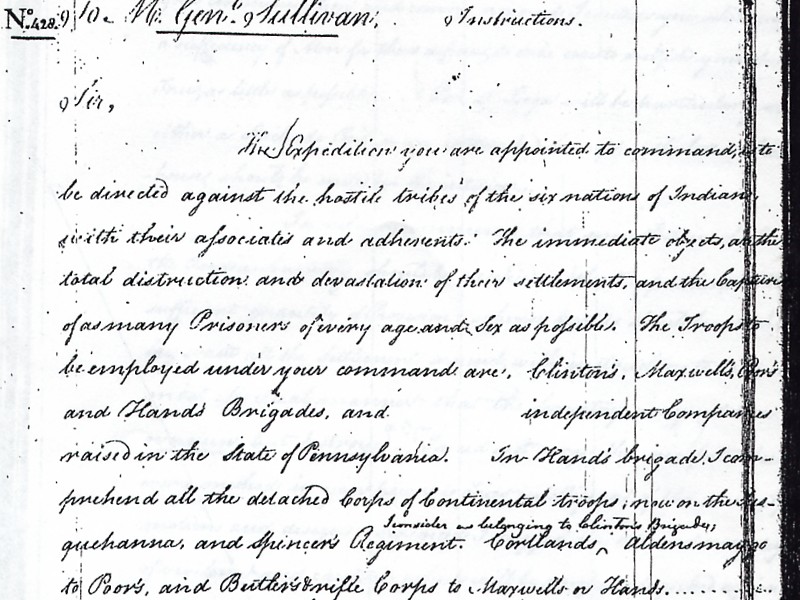 No. 428. To M. Genl. Sullivan. Instructions.
Sir,
The Expedition you are appointed to command, is to
be directed against the hostile tribes of the six nations of Indians
with their associates and adherents. The immediate objects, are the
total distruction and devastation of their settlements, and the Capture
of as many Prisoners of every age and Sex as possible. The Troops to
be employed under your command are, Clinton's, Maxwell's, Poor's
and Hand's Brigades, and independent Companies
raised in the State of Pennsylvania. In Hand's brigade, I com-
prehend all the detached Corps of Continental troops, now on the Sus-
I consider as belonging to Clinton's Brigade;
quehanna, and Spencer's Regiment. Cortlands ‸ Aldens may go
to Poor's, and Butler's & rifle Corps to Maxwells or Hands.